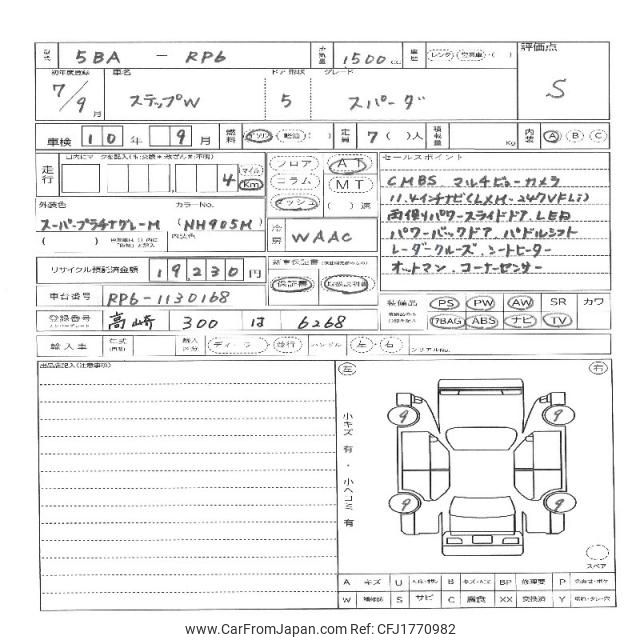 型式 5BA － RP6 排気量 1500 cc 車歴 レンタ・営業車・( ) 評価点
初年度登録 車名 ドア 形状 グレード
7/9月 ステップW 5 スパーダ S
車検 10年 9月 燃料 ガソリン・軽油・( ) 定員 7( )人 積載量 Kg 内装 A B C
走行 4 マイル Km フロア コラム AT MT セールスポイント
CMBS. マルチビューカメラ
外装色 カラーNo. ( )速 11.4インチナビ(LXM-247VFLi)
スーパープラチナグレーM (NH905M) 冷房 WAAC 両側パワースライドドア LED
パワーバックドア パドルシフト
リサイクル預託済金額 19,230円 新車保証書 レーダークルーズ.シートヒーター
保証書 取扱説明書 オットマン.コーナーセンサー
車台番号 RP6-1130168 装備品 PS PW AW SR カワ
登録番号 高崎 300 は 6268 ?BAG ABS ナビ TV
輸入車 年式 輸入区分 ディーラー・並行 ハンドル 左・右 シリアルNo.
出品店記入(注意事項) 左 右
小キズ有・小ヘコミ有
9 9
9 9
スペア
A キズ U B キズ・ヘコミ BP 修理要 P
W 補修跡 S サビ C 腐食 XX 交換済 Y 切れ・割れ・穴
www.CarFromJapan.com CFJ1770982